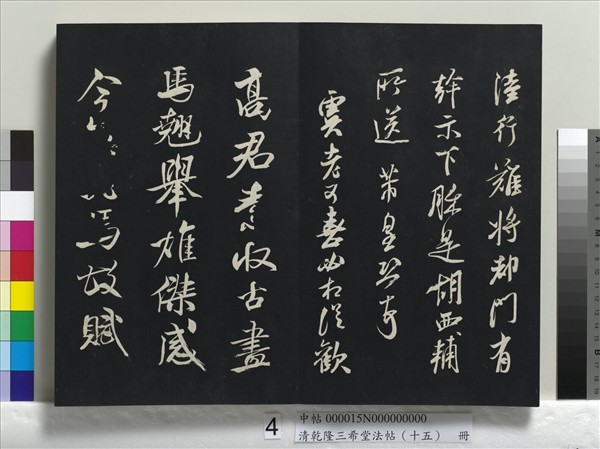 陸行難將却門有
幹示下是胡西輔
所送 芾皇恐
老可喜必相從歡
高君素收古畫
馬翹舉雄傑感
今馬故賦
4
中帖 000015N000000000
清乾隆三希堂法帖（十五） 冊